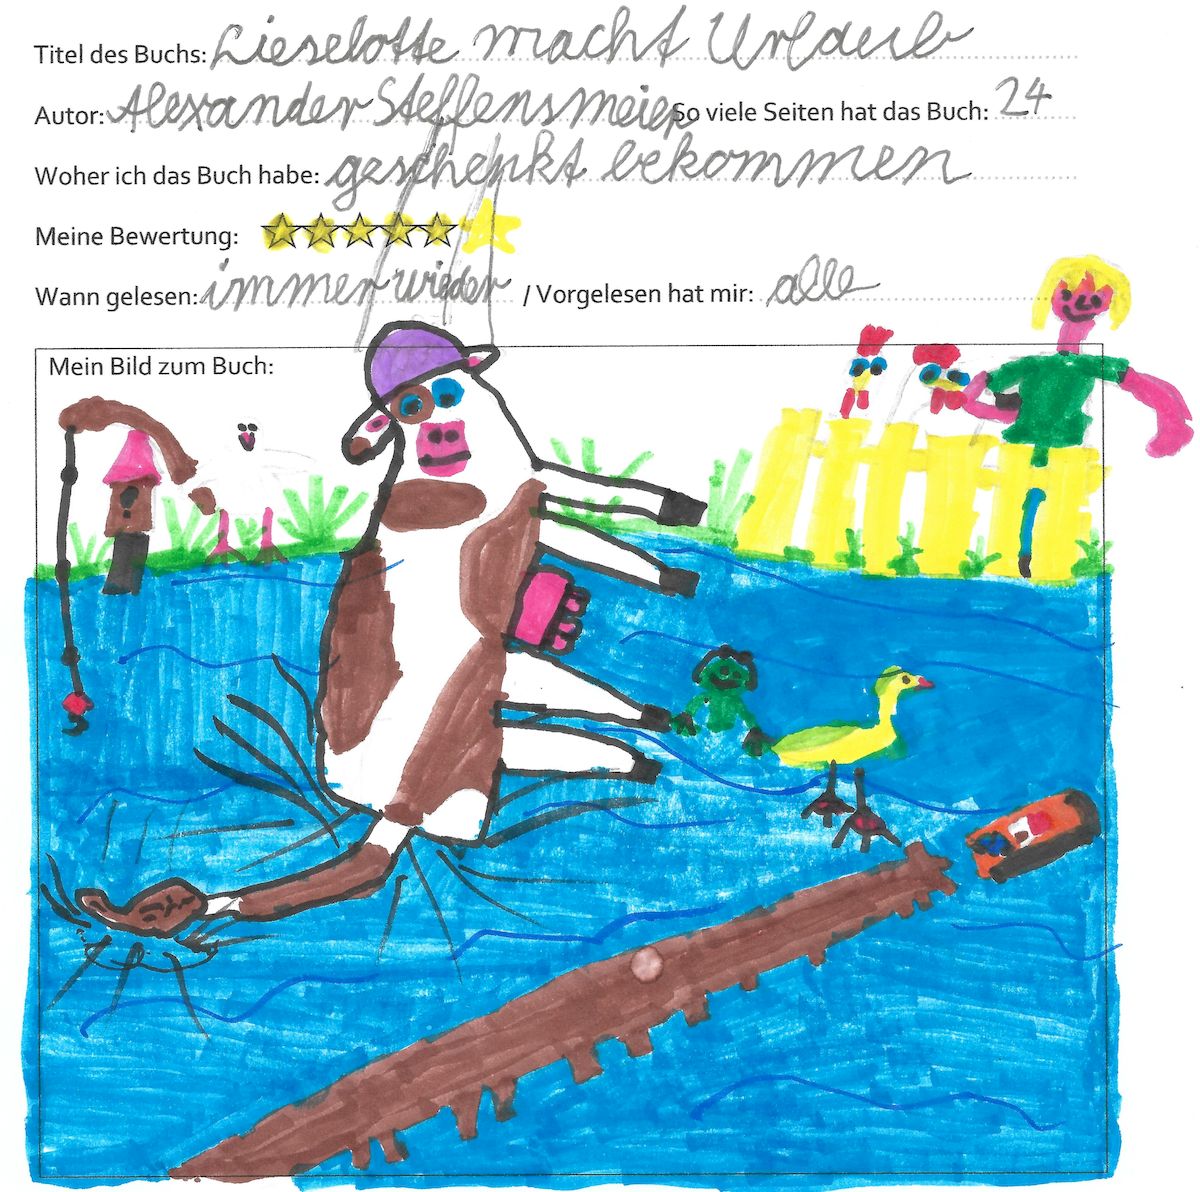 Titel des Buchs: Lieselotte macht Urlaub
Autor: Alexander Steffensmeier So viele Seiten hat das Buch: 24
Woher ich das Buch habe: geschenkt bekommen
Meine Bewertung:
Wann gelesen: immer wieder / Vorgelesen hat mir: alle
Mein Bild zum Buch: